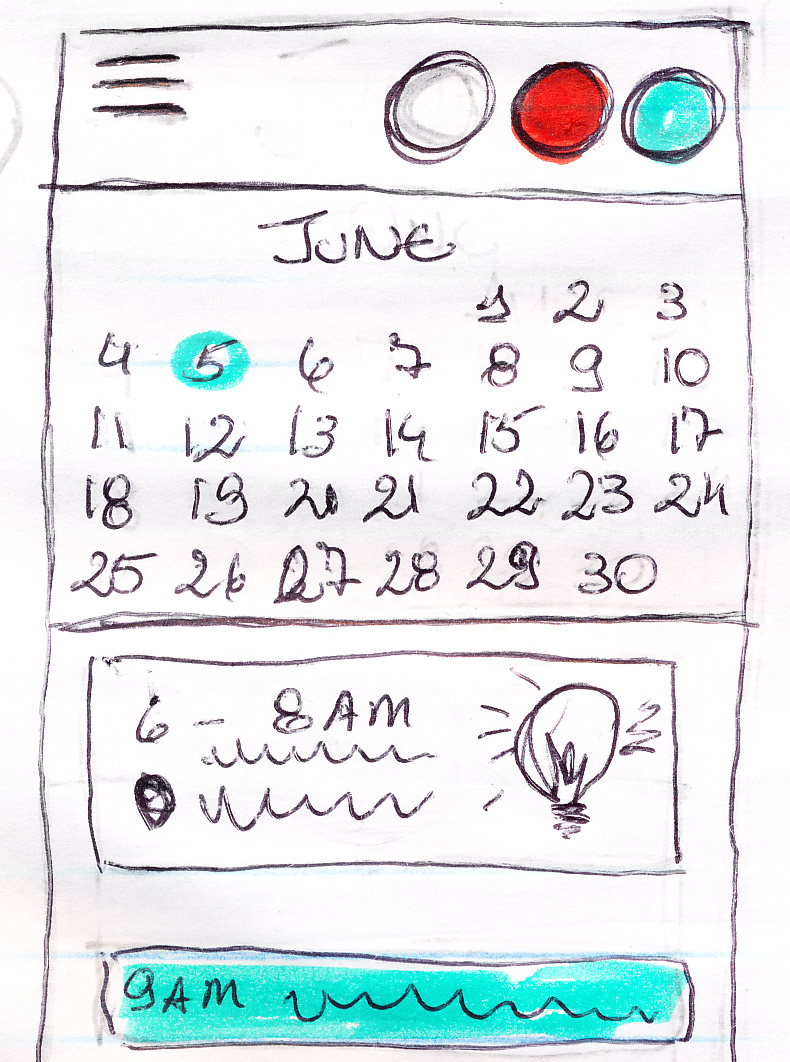 JUNE
1 2 3
4 5 6 7 8 9 10
11 12 13 14 15 16 17
18 19 20 21 22 23 24
25 26 27 28 29 30
6 - 8 AM
9 AM